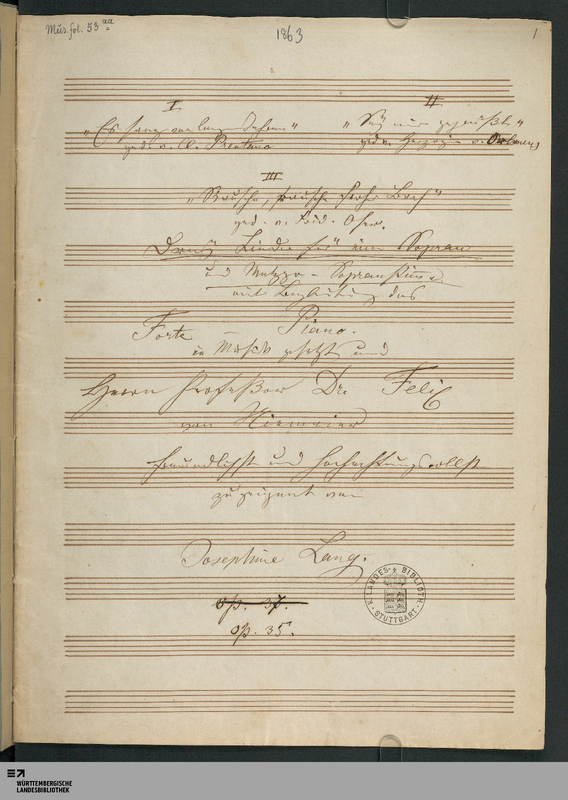 Mus. fol. 53 aa
1863
1
I
II
„Es sang vor langen Jahren“
„Sey mir gegrüßt“
ged. v. Cl. Brentano
ged. v.
III
„Rausche, rausche froher Bach“
ged. v. Frid. Oser.
Drey Lieder für eine Sopran
und Mezzo-Sopranstimme
mit Begleitung des
Forte – Piano.
in Musik gesetzt und
Herrn Professor Dr. Felix
von Niemeier
freundlichst und hochachtungsvollst
zugeeignet von
Josephine Lang.
op. 37.
op. 35.
K. LANDES-BIBLIOTH. STUTTGART
WÜRTTEMBERGISCHE
LANDESBIBLIOTHEK